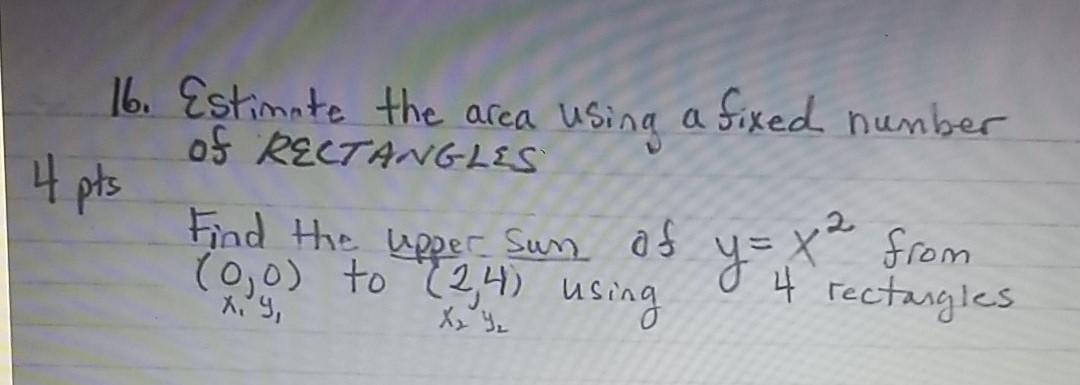 16. Estimate the area using a fixed number
of RECTANGLES
4 pts
Find the upper sum of y = x² from
(0,0) to (2,4) using 4 rectangles
x₁ y₁ x₂ y₂